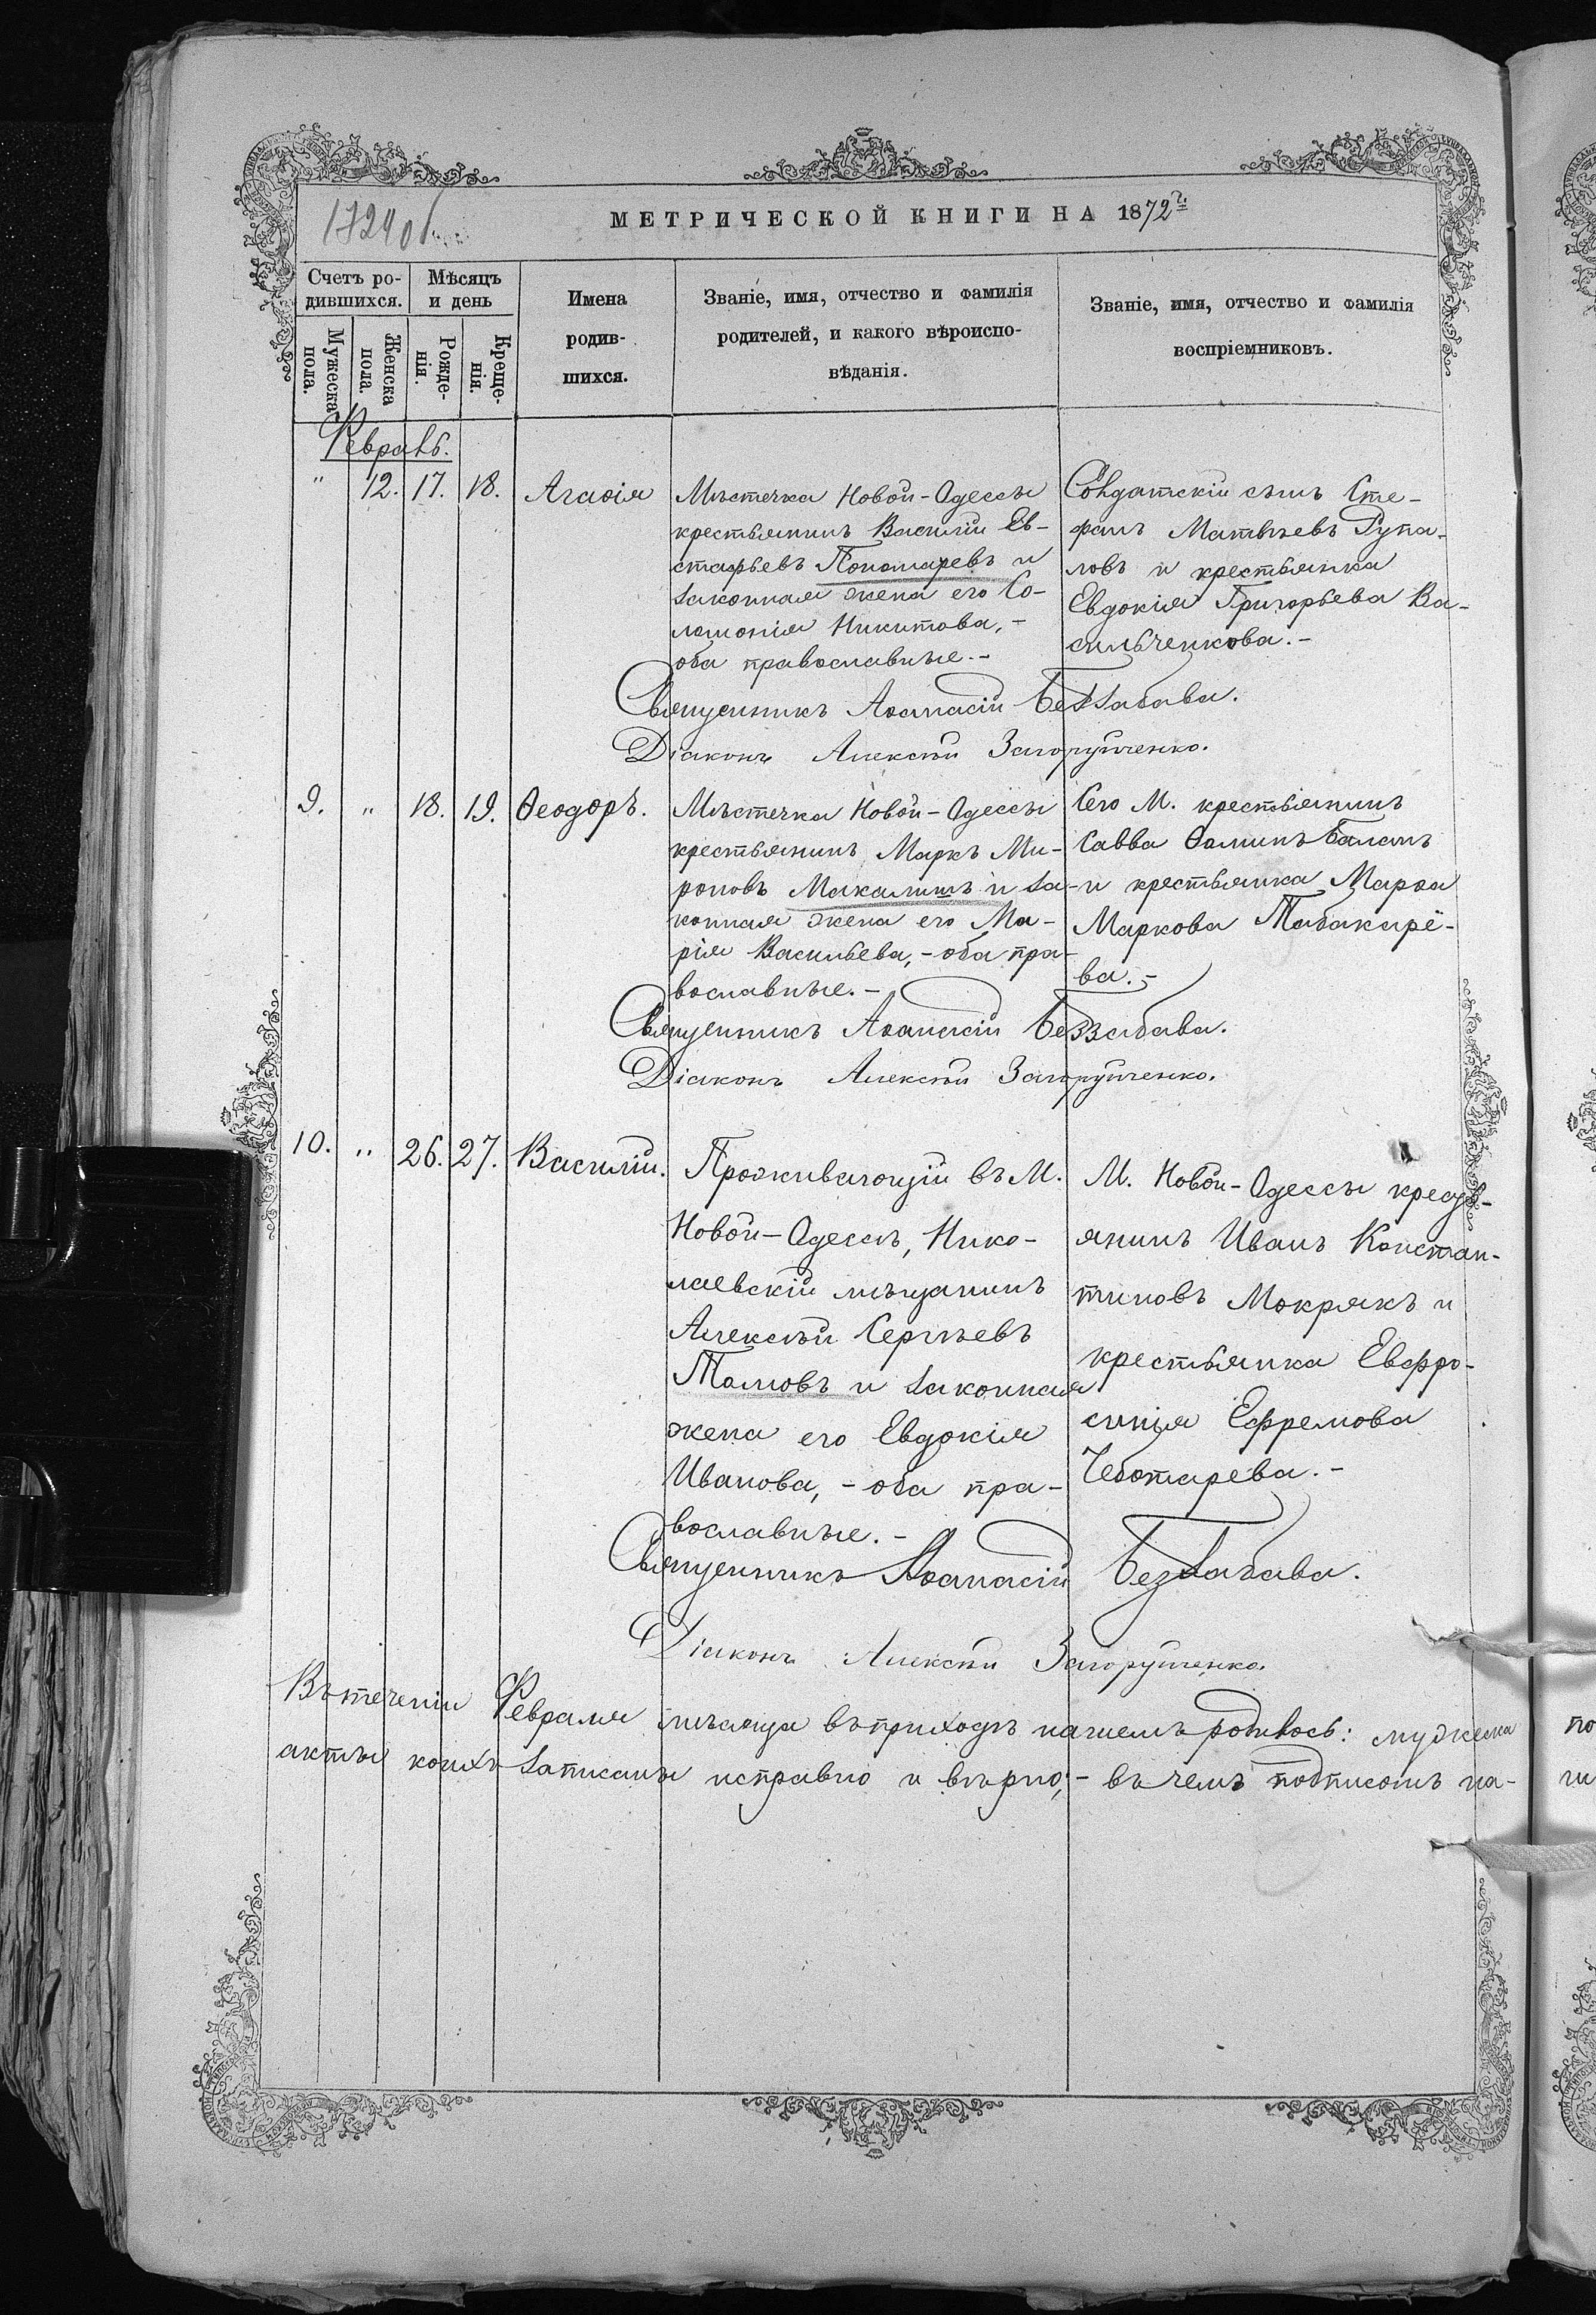 1724 об.
МЕТРИЧЕСКОЙ КНИГИ НА 1872 г.
Счетъ ро-
дившихся.
Мѣсяцъ
и день
Имена
родив-
шихся.
Званіе, имя, отчество и фамилія
родителей, и какого вѣроиспо-
вѣданія.
Званіе, имя, отчество и фамилія
воспріемниковъ.
Мужеска
пола.
Женска
пола.
Рожде-
нія.
Креще-
нія.
Февраль.
" 12. 17. 18. Агаѳія
Мѣстечка Новой-Одессы
крестьянинъ Василій Ев-
стафьевъ Пономаревъ и
законная жена его Со-
ломонія Никитова, -
оба православные. -
Солдатскій сынъ Сте-
фанъ Матвѣевъ Рупа-
ловъ и крестьянка
Евдокія Григорьева Ва-
сильченкова. -
Священникъ Аѳанасій Беззабава.
Діаконъ Алексѣй Загоруйченко.
9. " 18. 19. Ѳеодоръ.
Мѣстечка Новой-Одессы
крестьянинъ Маркъ Ми-
роновъ Макалишъ и за-
конная жена его Ма-
рія Васильева, - оба пра-
вославные. -
Сего М. крестьянинъ
Савва Ѳоминъ Баланъ
и крестьянка Марѳа
Маркова Табакарё-
ва. -
Священникъ Аѳанасій Беззабава.
Діаконъ Алексѣй Загоруйченко.
10. " 26. 27. Василій.
Проживающій въ М.
Новой-Одессѣ, Нико-
лаевскій мѣщанинъ
Алексѣй Сергѣевъ
Таловъ и законная
жена его Евдокія
Иванова, - оба пра-
вославные. -
М. Новой-Одессы кресть-
янинъ Иванъ Констан-
тиновъ Мокрякъ и
крестьянка Евфро-
синія Ефремова
Чеботарева. -
Священникъ Аѳанасій Беззабава.
Діаконъ Алексѣй Загоруйченко.
Въ теченіи Февраля мѣсяца въ приходѣ нашемъ родилось: мужеска
акты коихъ записаны исправно и вѣрно; - въ чемъ подписомъ на-
по